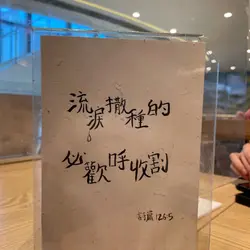 流淚撒種的
必歡呼收割
詩篇126:5